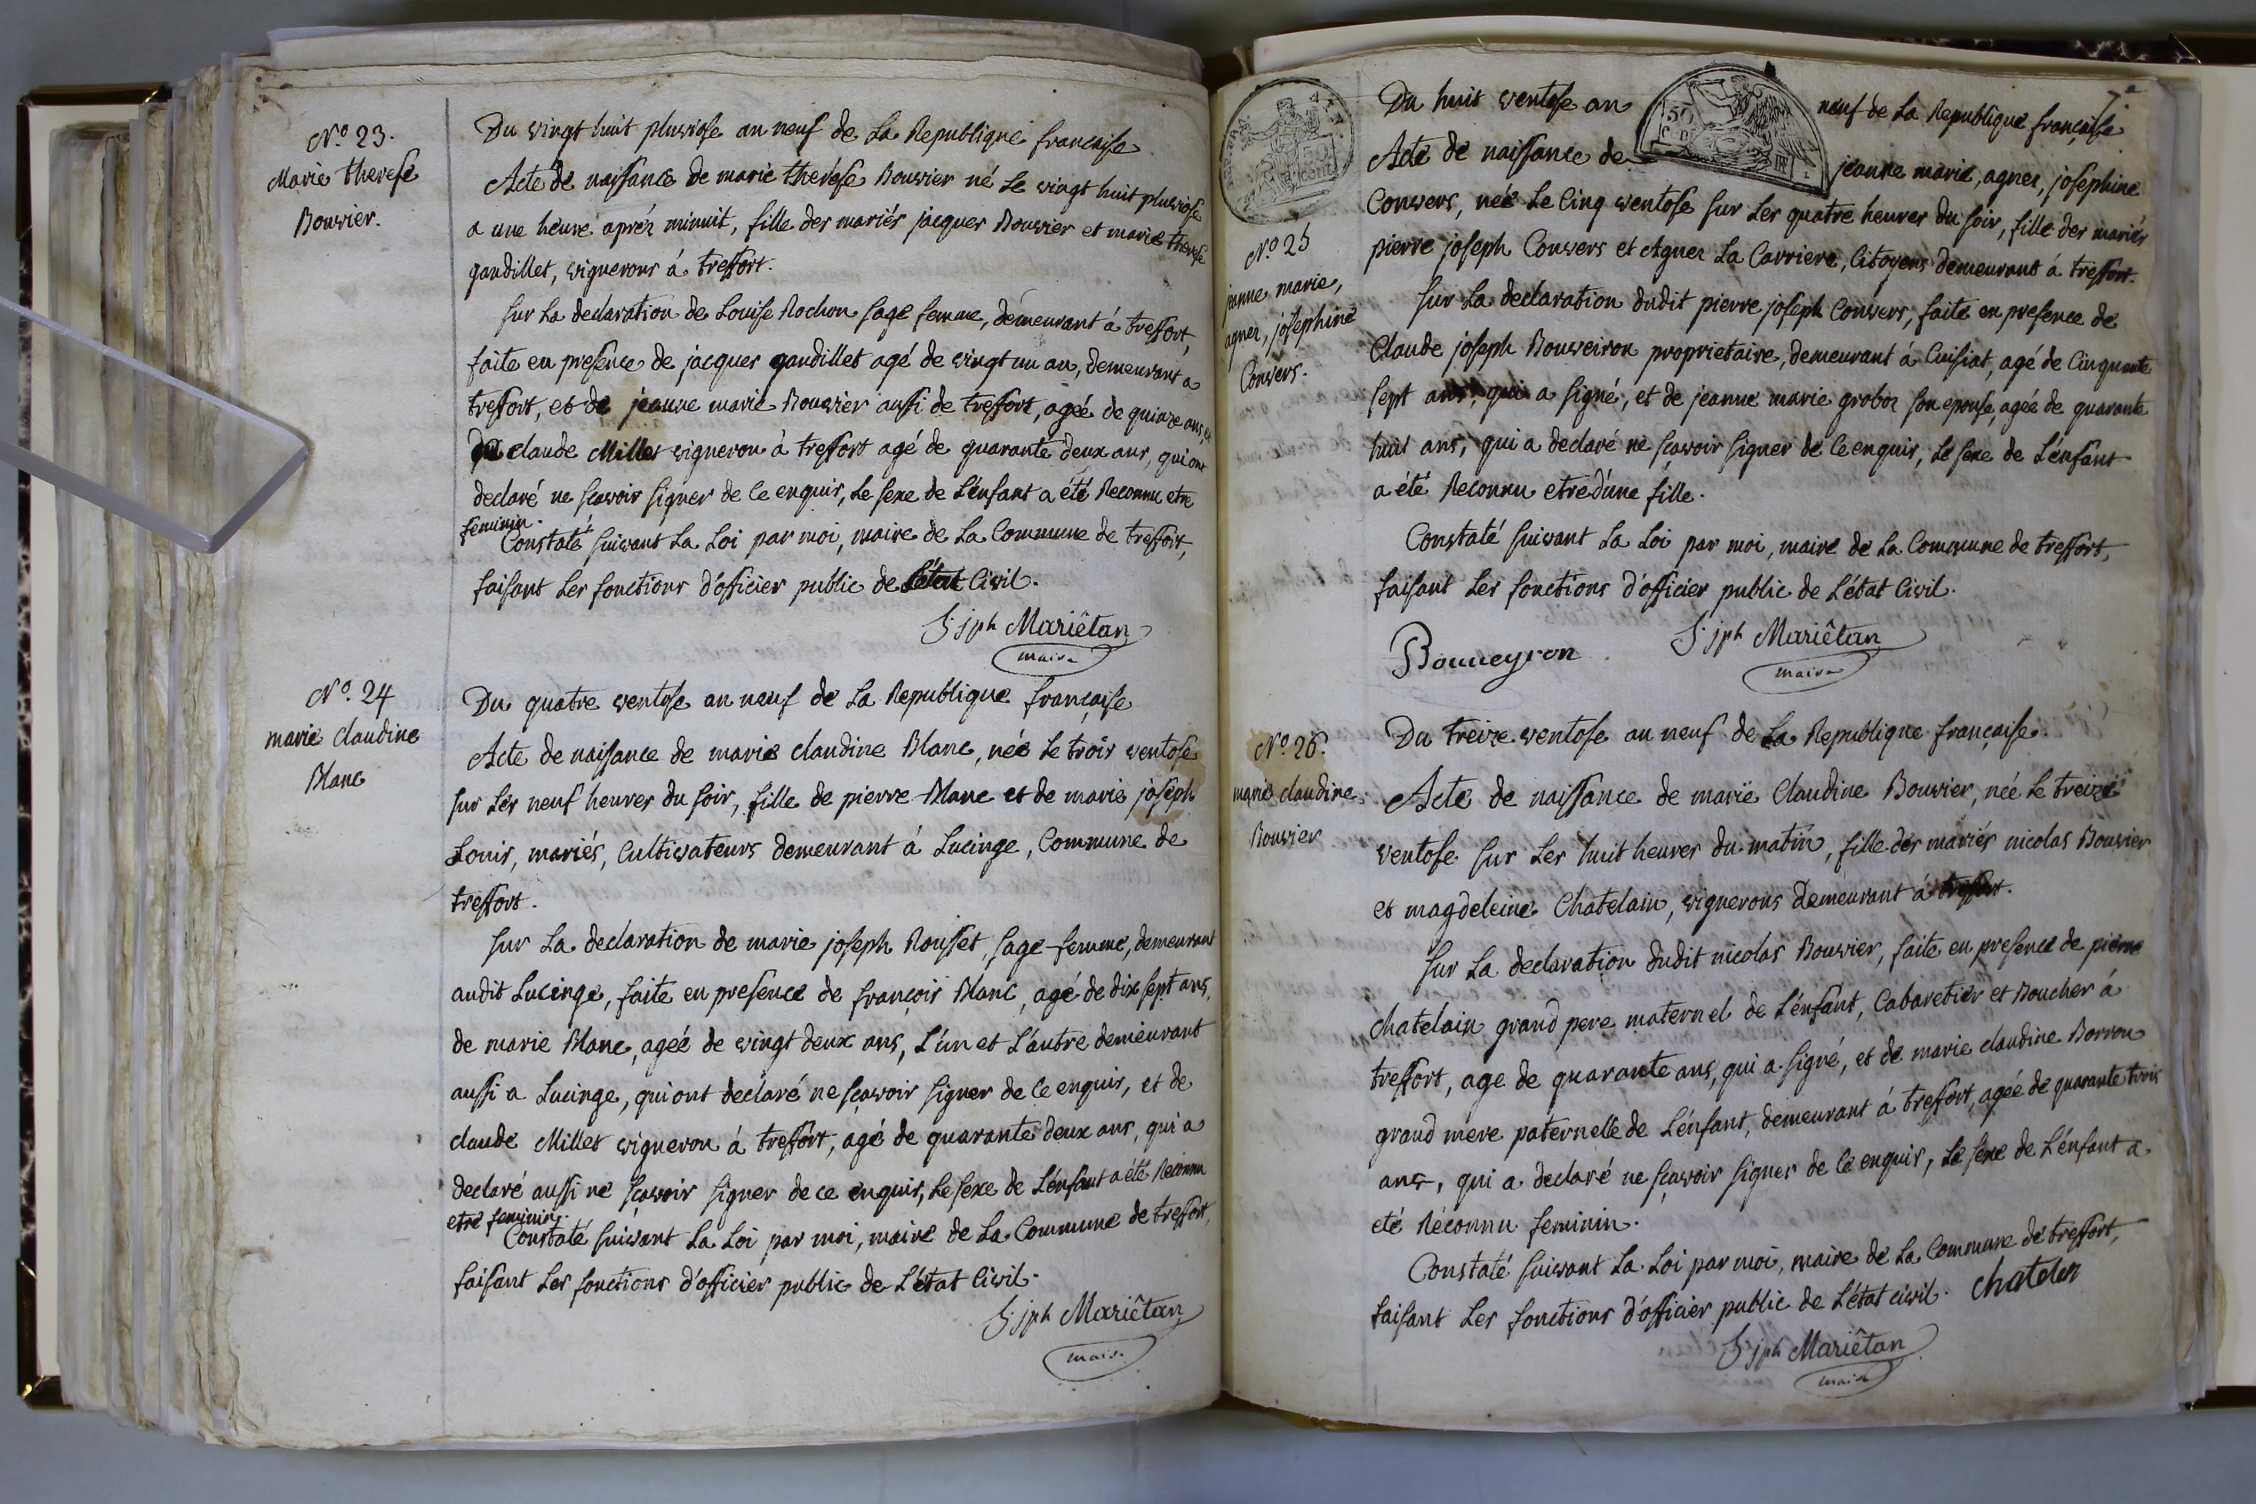 N.o 23.
Marie therese
Bouvier.
Du vingt huit pluviose an neuf de La Republique française
Acte de naissance de marie therése Bouvier né Le vingt huit pluviose
a une heure aprés minuit, fille des mariés jacques Bouvier et marie therese
gaudillet, vignerons á treffort.
sur La declaration de Louise Rochon sage femme, demeurant á treffort,
faite en presence de jacques gaudillet agé de vingt un an, demeurant a
treffort, et de jeanne marie Bouvier aussi de treffort, ageé de quinze ans, et
de claude Millet vigneron à treffort agé de quarante deux ans, qui ont
declaré ne sçavoir signer de Ce enquis, Le sexe de L'énfant a été Reconnu etre
feminin.
Constaté suivant La Loi par moi, maire de La Commune de treffort,
faisant Les fonctions d'officier public de L'état Civil.
jph Mariêtan
maire
N.o 24
marie claudine
Blanc
Du quatre ventose an neuf de La Republique française
Acte de naissance de marie claudine Blanc, née Le trois ventose
sur Les neuf heures du soir, fille de pierre Blanc et de marie joseph
Louis, mariés, Cultivateurs demeurant á Lucinge, Commune de
treffort.
sur La declaration de marie joseph Rousset, sage-femme, demeurant
audit Lucinge, faite en presence de françois Blanc, agé de dix sept ans,
de marie Blanc, ageé de vingt deux ans, L'un et L'autre demeurant
aussi a Lucinge, qui ont declaré ne sçavoir signer de Ce enquis, et de
claude Millet vigneron á treffort, agé de quarante deux ans, qui a
declaré aussi ne sçavoir signer de ce enquis, Le sexe de L'énfant a été Reconnu
etre feminin.
Constaté suivant La Loi par moi, maire de La Commune de treffort,
faisant Les fonctions d'officier public de L'état Civil.
jph Mariêtan
maire
7.e
50
N.o 25
jeanne marie,
agnes, josephine
Convers.
Du huit ventose an neuf de La Republique française
Acte de naissance de jeanne marie, agnes, josephine
Convers, née Le Cinq ventose sur Les quatre heures du soir, fille des mariés
pierre joseph Convers et Agnes La Carriere, Citoyens demeurant á treffort.
sur La declaration dudit pierre joseph Convers, faite en presence de
Claude joseph Bouveiron proprietaire, demeurant á Cuisiat, agé de Cinquante
sept ans, qui a signé, et de jeanne marie groboz son epouse, ageé de quarante
huit ans, qui a declaré ne sçavoir signer de Ce enquis, Le sexe de L'énfant
a été Reconnu etre d'une fille.
Constaté suivant La Loi par moi, maire de La Commune de treffort,
faisant Les fonctions d'officier public de L'état Civil.
Bouveyron
jph Mariêtan
maire
N.o 26.
marie claudine
Bouvier
Du treize ventose an neuf de La Republique française.
Acte de naissance de marie Claudine Bouvier, née Le treize
ventose sur Les huit heures du matin, fille des mariés nicolas Bouvier
et magdeleine Chatelain, vignerons demeurant á treffort.
sur La declaration dudit nicolas Bouvier, faite en presence de pierre
chatelain grand pere maternel de L'énfant, Cabaretier et Boucher á
treffort, age de quarante ans, qui a signé, et de marie claudine Borron
grand mere paternelle de L'énfant, demeurant á treffort, ageé de quarante trois
ans, qui a declaré ne sçavoir signer de Ce enquis, Le sexe de L'énfant a
eté Réconnu feminin.
Constaté suivant La Loi par moi, maire de La Commune de treffort,
faisant Les fonctions d'officier public de L'état civil.
chatelen
jph Mariêtan
maire